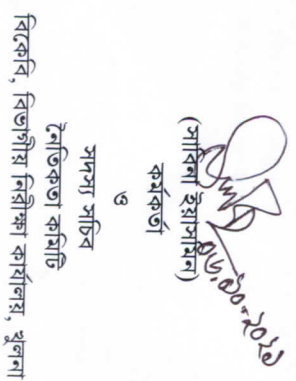 ০৮.১০.২০২৩
(সাবিনা ইয়াসমিন)
কর্মকর্তা
ও
সদস্য সচিব
নৈতিকতা কমিটি
বিকেবি, বিভাগীয় নিরীক্ষা কার্যালয়, খুলনা